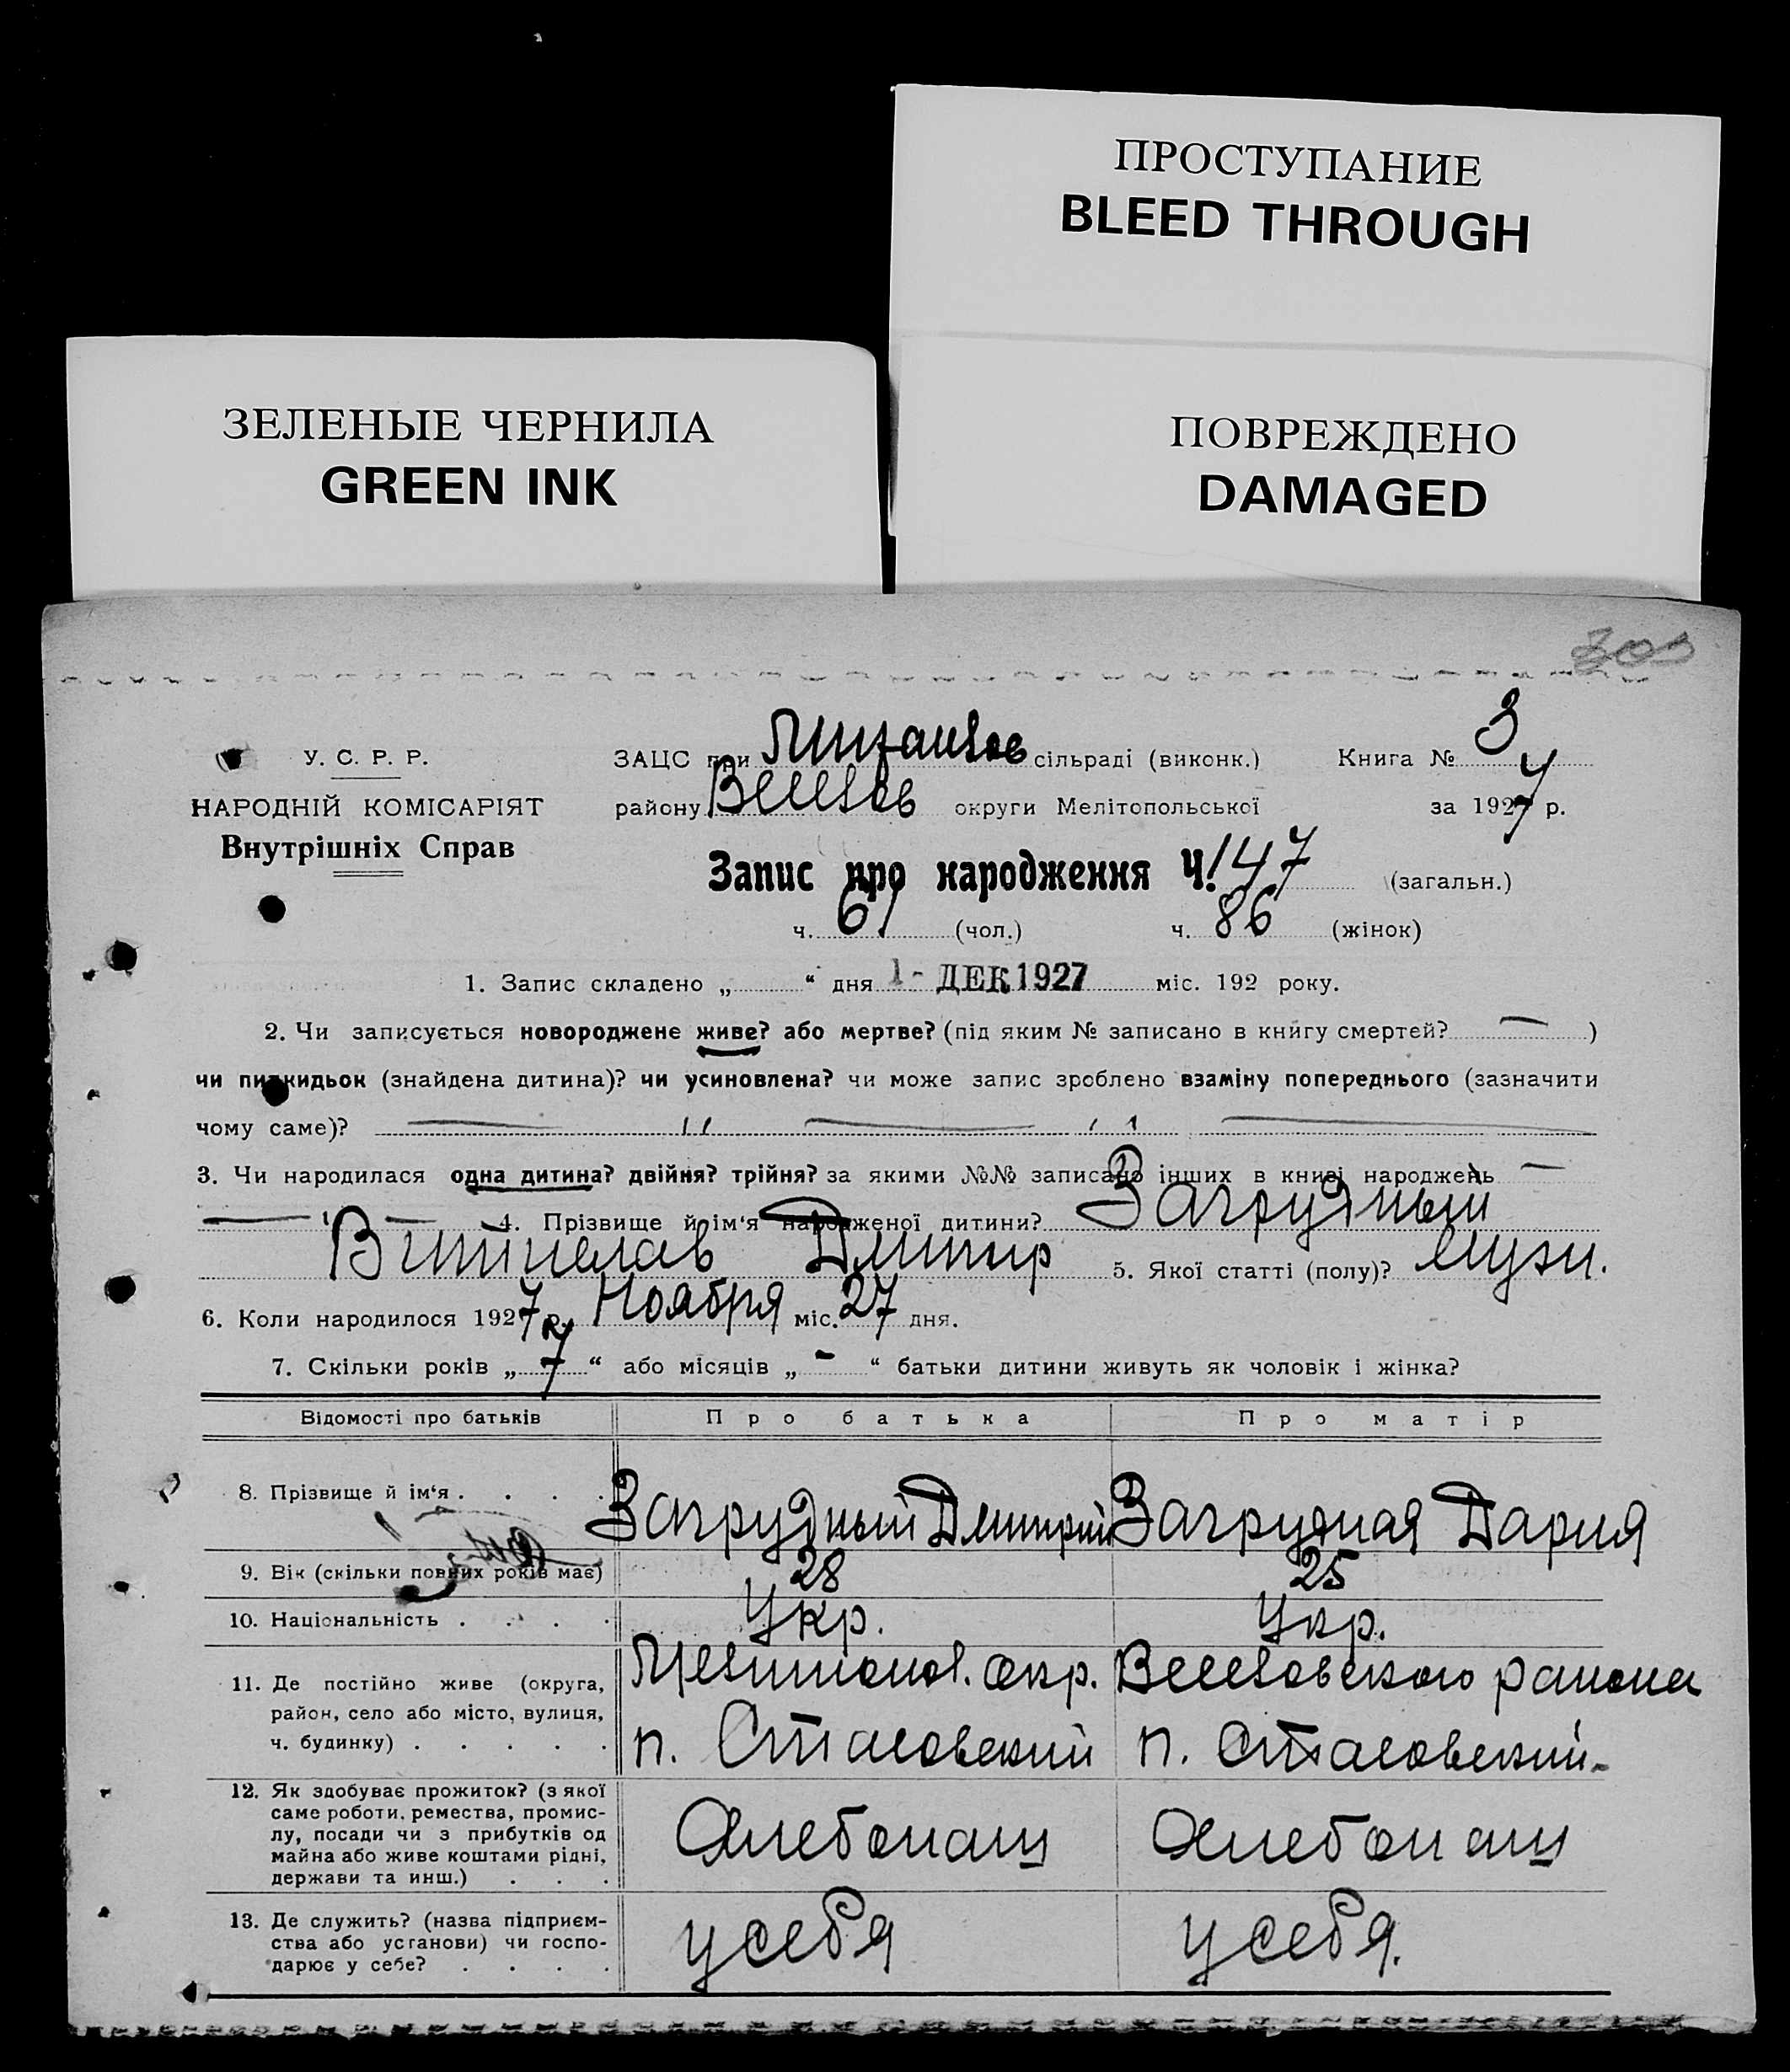 ПРОСТУПАНИЕ
BLEED THROUGH
ЗЕЛЕНЫЕ ЧЕРНИЛА
GREEN INK
ПОВРЕЖДЕНО
DAMAGED
У. С. Р. Р.
НАРОДНІЙ КОМІСАРІЯТ
Внутрішніх Справ
ЗАЦС при сільраді (виконк.) Книга № 3
району Веселов округи Мелітопольської за 1927 р.
Запис про народження Ч. 147 (загальн.)
ч. 61 (чол.) ч. 86 (жінок)
1. Запис складено „ “ дня 1- ДЕК 1927 міс. 192 року.
2. Чи записується новороджене живе? або мертве? (під яким № записано в книгу смертей? — )
чи підкидьок (знайдена дитина)? чи усиновлена? чи може запис зроблено взаміну попереднього (зазначити
чому саме)? — ״ — ״ —
3. Чи народилася одна дитина? двійня? трійня? за якими №№ записано інших в книзі народжень —
— ״ — 4. Прізвище й ім‘я народженої дитини? Загрудный
Дмитр 5. Якої статті (полу)? мужч.
6. Коли народилося 1927 р. Ноября міс. 27 дня.
7. Скільки років „ 7 “ або місяців „ - “ батьки дитини живуть як чоловік і жінка?
Відомості про батьків Про батька Про матір
8. Прізвище й ім‘я . . . . Загрудный Дмитрий Загрудная Дария
9. Вік (скільки повних років має) 28 25
10. Національність . . . . Укр. Укр.
11. Де постійно живе (округа, Мелитопол. окр. Веселовского района
район, село або місто, вулиця,
ч. будинку) . . . . . п. Стасовский п. Стасовский
12. Як здобуває прожиток? (з якої
саме роботи, ремества, промис-
лу, посади чи з прибутків од Хлебопаш Хлебопаш
майна або живе коштами рідні,
держави та инш.) . . .
13. Де служить? (назва підприєм-
ства або установи) чи госпо- у себя у себя.
дарює у себе? . . . .